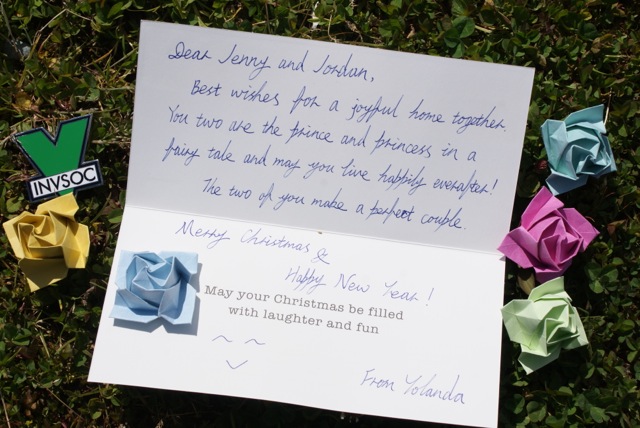 Dear Jenny and Jordan,
Best wishes for a joyful home together.
You two are the prince and princess in a
fairy tale and may you live happily everafter!
The two of you make a perfect couple.
Merry Christmas &
Happy New Year!
May your Christmas be filled
with laughter and fun
From Yolanda
INVSOC